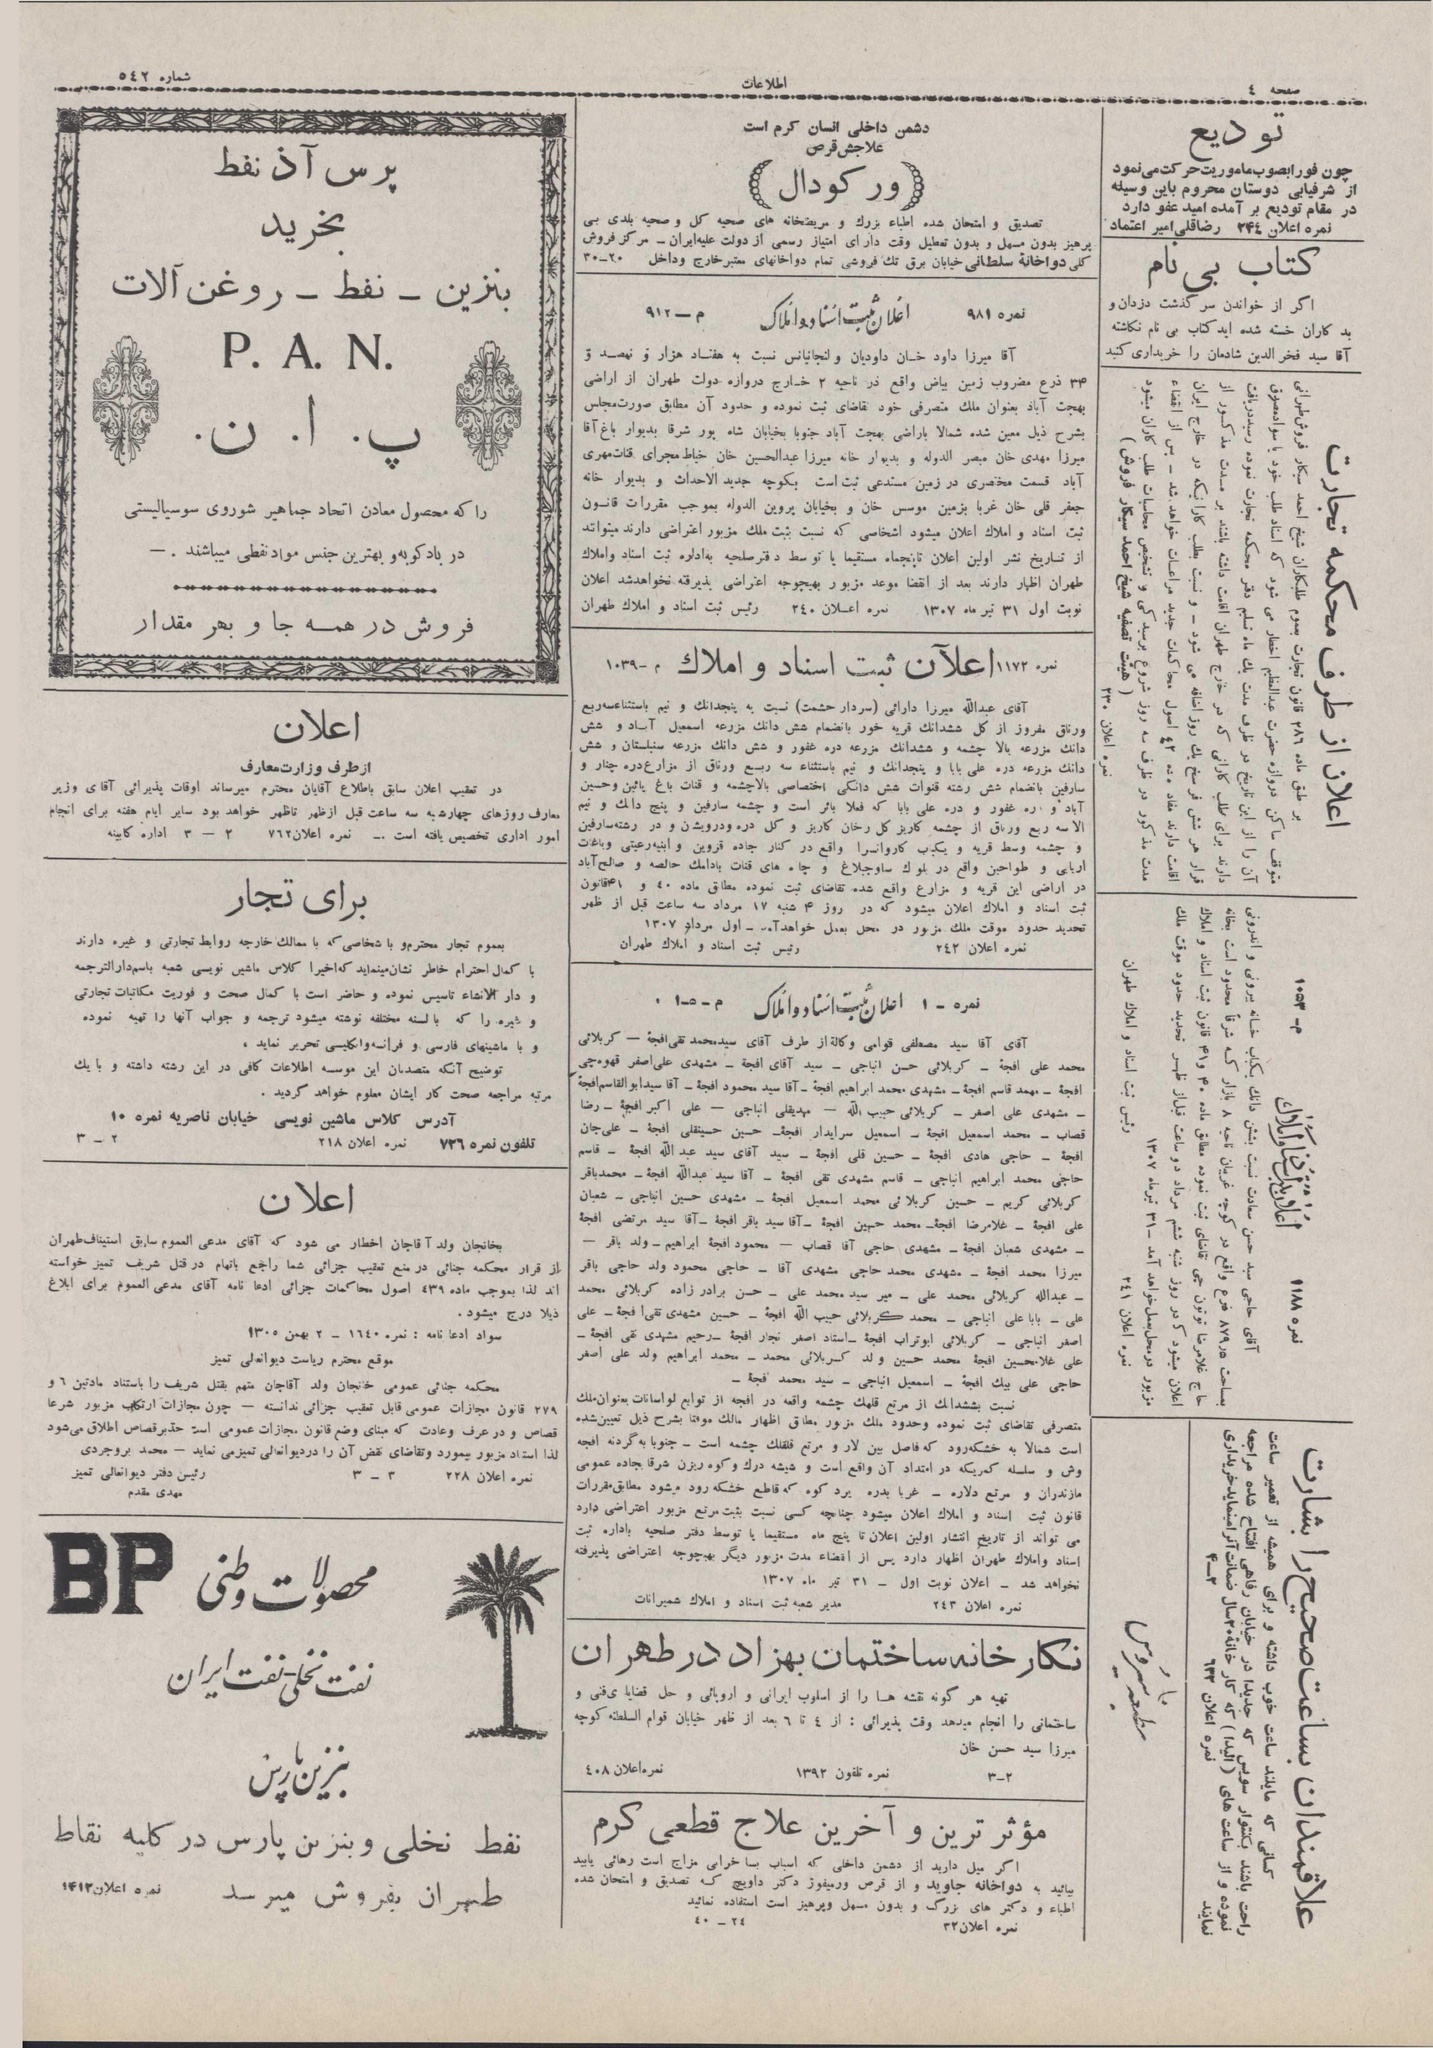 صفحه ٤
اطلاعات
شماره ٥٤٢
تودیع
چون فورا بصوب ماموریت حرکت می نمود
از شرفیابی دوستان محروم باین وسیله
در مقام تودیع بر آمده امید عفو دارد
نمره اعلان ۲۴۴ رضاقلی امیر اعتماد
کتاب بی نام
اگر از خواندن سر گذشت دزدان و
بد کاران خسته شده اید کتاب بی نام نگاشته
آقا سید فخر الدین شادمان را خریداری کنید
اعلان از طرف محکمه تجارت
بر طبق ماده ۲۸۶ قانون تجارت بعموم طلبکاران شیخ احمد سیگار فروش طهرانی
متوقف ساکن دروازه حضرت عبدالعظیم اخطار می شود که اسناد طلب خود یا سواد مصدق
آن را از این تاریخ در ظرف مدت یك ماه تسلیم دفتر محکمه تجارت نموده رسید دریافت
دارند برای طلب کارانی که در خارج طهران اقامت داشته باشند بر مدت مذکور از
قرار هر شش فرسخ یك روز اضافه می شود – و نسبت بطلب کارانیکه در خارج ایران
اقامت دارند مفاد ماده ٤٢ اصول محاکمات جدید مراعات خواهد شد – پس از انقضاء
مدت مذکور در ظرف سه روز شروع برسیدگی و تشخیص محاسبات طلب کاران میشود
( هیئت تصفیه شیخ احمد سیگار فروش )
نمره اعلان ۲۳۰
نمره ۱۱۸۸ اعلان ثبت اسناد و املاک م– ۱۰۵۳
آقای حاجی سید حسن سعادت نسبت بشش دانك یکباب خانه بیرونی و اندرونی
بمساحت ۸۷۹٫۵ ذرع واقع در کوچه غریبان ناحیه ۸ بازار که شرقا محدود است بخانه
حاج غلامرضا توتون چی تقاضای ثبت نموده مطابق ماده ۴۰ و ۴۱ قانون ثبت اسناد و املاك
اعلان میشود که در روز شنبه ششم مرداد دو ساعت قبل از ظهر تحدید حدود موقت ملك
مزبور در محل بعمل خواهد آمد – ۳۱ تیر ماه ۱۳۰۷
نمره اعلان ۲٤۱ رئیس ثبت اسناد و املاك طهران
علاقمندان بساعت صحیح را بشارت
کسانی که مایلند ساعت خوب داشته و برای همیشه از تعمیر ساعت
راحت باشند بکنتوار سویس که جدیدا در خیابان رفاهی افتتاح شده مراجعه
نموده و از ساعت های (الیدا) که کار خانه ۲۰ سال ضمانت آنرا مینماید خریداری
نمایند نمره اعلان ٦٣٣ ۲–۴
مطبعه سیروس
دشمن داخلی انسان کرم است
علاجش قرص
(ور کودال)
تصدیق و امتحان شده اطباء بزرك و مریضخانه های صحیه کل و صحیه بلدی بی
پرهیز بدون مسهل و بدون تعطیل وقت دارای امتیاز رسمی از دولت علیه ایران – مرکز فروش
کلی دواخانهٔ سلطانی خیابان برق تك فروشی تمام دواخانهای معتبر خارج و داخل ۲۰–۳۰
نمره ۹۸۱ اعلان ثبت اسناد و املاک م – ۹۱۲
آقا میرزا داود خان داودیان ولنجانیانس نسبت به هفتاد هزار و نهصد و
۳۴ ذرع مضروب زمین بیاض واقع در ناحیه ۲ خارج دروازه دولت طهران از اراضی
بهجت آباد بعنوان ملك متصرفی خود تقاضای ثبت نموده و حدود آن مطابق صورت مجلس
بشرح ذیل معین شده شمالا باراضی بهجت آباد جنوبا بخیابان شاه پور شرقا بدیوار باغ آقا
میرزا مهدی خان مبصر الدوله و بدیوار خانه میرزا عبدالحسین خان خیاط مجرای قنات مهری
آباد قسمت مختصری در زمین مستدعی ثبت است بکوچه جدید الاحداث و بدیوار خانه
جعفر قلی خان غربا بزمین موسس خان و بخیابان پروین الدوله بموجب مقررات قانون
ثبت اسناد و املاك اعلان میشود اشخاصی که نسبت بثبت ملك مزبور اعتراضی دارند میتوانند
از تاریخ نشر اولین اعلان تا پنجماه مستقیما یا توسط دفتر صلحیه به اداره ثبت اسناد و املاك
طهران اظهار دارند بعد از انقضا موعد مزبور بهیچوجه اعتراضی پذیرفته نخواهد شد اعلان
نوبت اول ۳۱ تیر ماه ۱۳۰۷ نمره اعلان ۲٤۰ رئیس ثبت اسناد و املاك طهران
نمره ۱۱۷۲ اعلان ثبت اسناد و املاك م –۱۰۳۹
آقای عبدالله میرزا دارائی (سردار حشمت) نسبت به پنجدانك و نیم باستثناء سه ربع
ورتاق مفروز از کل ششدانك قریه خور بانضمام شش دانك مزرعه اسمعیل آباد و شش
دانك مزرعه بالا چشمه و ششدانك مزرعه دره غفور و شش دانك مزرعه سنبلستان و شش
دانك مزرعه دره علی بابا و پنجدانك و نیم باستثناء سه ربع ورتاق از مزارع دره چنار و
سارفین بانضمام شش رشته قنوات شش دانگی اختصاصی بالاچشمه و قنات باغ پائین و حسین
آباد و دره غفور و دره علی بابا که فعلا بائر است و چشمه سارفین و پنج دانك و نیم
الا سه ربع ورتاق از چشمه کاریز کل رخان کاریز و کل دره و درویشن و در رشته سارفین
و چشمه وسط قریه و یکباب کاروانسرا واقع در کنار جاده قزوین و ابنیه رعیتی و باغات
اربابی و طواحین واقع در بلوك ساوجبلاغ و چاه های قنات بادامك خالصه و صالح آباد
در اراضی این قریه و مزارع واقع شده تقاضای ثبت نموده مطابق ماده ۴۰ و ۴۱ قانون
ثبت اسناد و املاك اعلان میشود که در روز ۴ شنبه ۱۷ مرداد سه ساعت قبل از ظهر
تحدید حدود موقت ملك مزبور در محل بعمل خواهد آمد – اول مرداد ۱۳۰۷
نمره اعلان ۲٤۲ رئیس ثبت اسناد و املاك طهران
نمره – ۱ اعلان ثبت اسناد و املاک م –۵–۱۰
آقای آقا سید مصطفی قوامی وکالة از طرف آقای سید محمد تقی افجهٔ – کربلائی
محمد علی افجهٔ – کربلائی حسن انباجی – سید آقای افجهٔ – مشهدی علی اصغر قهوه چی
افجهٔ – مهمد قاسم افجهٔ – مشهدی محمد ابراهیم افجهٔ – آقا سید محمود افجهٔ – آقا سید ابوالقاسم افجهٔ
– مشهدی علی اصغر – کربلائی حبیب الله – مهدیقلی انباجی – علی اکبر افجهٔ – رضا
قصاب – محمد اسمعیل افجهٔ – اسمعیل سرایدار افجهٔ – حسین حسینقلی افجهٔ – علی جان
افجهٔ – حاجی هادی افجهٔ – حسین قلی افجهٔ – سید آقای سید عبد الله افجهٔ – قاسم
حاجی محمد ابراهیم انباجی – قاسم مشهدی تقی افجهٔ – آقا سید عبدالله افجهٔ – محمد باقر
کربلائی کریم – حسین کربلائی محمد اسمعیل افجهٔ – مشهدی حسین انباجی – شعبان
علی افجهٔ – غلامرضا افجهٔ – محمد حسین افجهٔ – آقا سید باقر افجهٔ – آقا سید مرتضی افجهٔ
– مشهدی شعبان افجهٔ – مشهدی حاجی آقا قصاب – محمود افجهٔ ابراهیم – ولد باقر –
میرزا محمد افجهٔ – مشهدی محمد حاجی مشهدی آقا – حاجی محمود ولد حاجی باقر
– عبدالله کربلائی محمد علی – میر سید محمد علی – حسن برادر زاده کربلائی محمد
علی – بابا علی انباجی – محمد کربلائی حبیب الله افجهٔ – حسین مشهدی تقی افجهٔ – علی
اصغر انباجی – کربلائی ابوتراب افجهٔ – استاد اصغر نجار افجهٔ – رحیم مشهدی تقی افجهٔ –
علی غلامحسین افجهٔ محمد حسین ولد کربلائی محمد – محمد ابراهیم ولد علی اصغر
حاجی علی بیك افجهٔ – اسمعیل انباجی – سید محمد افجهٔ –
نسبت بششدانك از مرتع قلهك چشمه واقعه در افجه از توابع لواسانات بعنوان ملك
متصرفی تقاضای ثبت نموده وحدود ملك مزبور مطابق اظهار مالك موقتا بشرح ذیل تعیین شده
است شمالا به خشکه رود که فاصل بین لار و مرتع قلقلك چشمه است – جنوبا به گردنه افجه
وش و سلسله کمریکه در امتداد آن واقع است و شیشه درك و کوه ریزن شرقا بجاده عمومی
مازندران و مرتع دلاره – غربا بدره یرد کوه که قاطع خشکه رود میشود مطابق مقررات
قانون ثبت اسناد و املاك اعلان میشود چنانچه کسی نسبت بثبت مرتع مزبور اعتراضی دارد
می تواند از تاریخ انتشار اولین اعلان تا پنج ماه مستقیما یا توسط دفتر صلحیه باداره ثبت
اسناد و املاك طهران اظهار دارد پس از انقضاء مدت مزبور دیگر بهیچوجه اعتراضی پذیرفته
نخواهد شد – اعلان نوبت اول – ۳۱ تیر ماه ۱۳۰۷
نمره اعلان ۲٤۳ مدیر شعبه ثبت اسناد و املاك شمیرانات
نگارخانه ساختمان بهزاد در طهران
تهیه هر گونه نقشه ها را از اسلوب ایرانی و اروپائی و حل قضایای فنی و
ساختمانی را انجام میدهد وقت پذیرائی : از ٤ تا ٦ بعد از ظهر خیابان قوام السلطنه کوچه
میرزا سید حسن خان
۲–۳ نمره تلفون ۱۳۹۲ نمره اعلان ٤۰۸
مؤثر ترین و آخرین علاج قطعی کرم
اگر میل دارید از دشمن داخلی که اسباب بسا خرابی مزاج است رهائی یابید
بیائید به دواخانه جاوید و از قرص ورمیفوژ دکتر داویچ که تصدیق و امتحان شده
اطباء و دکتر های بزرگ و بدون مسهل وپرهیز است استفاده نمائید
نمره اعلان ۳۲ ۲٤ – ٤۰
پرس آذ نفط
بخرید
بنزین – نفط – روغن آلات
P. A. N.
پ. ا. ن.
را که محصول معادن اتحاد جماهیر شوروی سوسیالیستی
در بادکوبه و بهترین جنس مواد نفطی میباشند . –
فروش در همه جا و بهر مقدار
اعلان
از طرف وزارت معارف
در تعقیب اعلان سابق باطلاع آقایان محترم میرساند اوقات پذیرائی آقای وزیر
معارف روزهای چهارشنبه سه ساعت قبل از ظهر تا ظهر خواهد بود سایر ایام هفته برای انجام
امور اداری تخصیص یافته است .– نمره اعلان ۷٦۲ ۲ – ۳ اداره کابینه
برای تجار
بعموم تجار محترم و با شخاصی که با ممالك خارجه روابط تجارتی و غیره دارند
با کمال احترام خاطر نشان مینماید که اخیرا کلاس ماشین نویسی شعبه باسم دارالترجمه
و دار الانشاء تاسیس نموده و حاضر است با کمال صحت و فوریت مکاتبات تجارتی
و غیره را که بالسنه مختلفه نوشته میشود ترجمه و جواب آنها را تهیه نموده
و با ماشینهای فارسی و فرانسه و انگلیسی تحریر نماید .
توضیح آنکه متصدیان این موسسه اطلاعات کافی در این رشته داشته و با یك
مرتبه مراجعه صحت کار ایشان معلوم خواهد گردید .
آدرس کلاس ماشین نویسی خیابان ناصریه نمره ۱۰
تلفون نمره ۷۲٦ نمره اعلان ۲۱۸ ۲ – ۳
اعلان
بخانجان ولد آقاجان اخطار می شود که آقای مدعی العموم سابق استیناف طهران
از قرار محکمه جنائی در منع تعقیب جزائی شما راجع باتهام در قتل شریف تمیز خواسته
اند لذا بموجب ماده ٤۳۹ اصول محاکمات جزائی ادعا نامه آقای مدعی العموم برای ابلاغ
ذیلا درج میشود .
سواد ادعا نامه : نمره ۱٦٤۰ – ۲ بهمن ۱۳۰۵
موقع محترم ریاست دیوانعالی تمیز
محکمه جنائی عمومی خانجان ولد آقاجان متهم بقتل شریف را باستناد مادتین ٦ و
۲۷۹ قانون مجازات عمومی قابل تعقیب جزائی ندانسته – چون مجازات ارتکاب مزبور شرعا
قصاص و در عرف وعادت که مبنای وضع قانون مجازات عمومی است حذبر قصاص اطلاق می شود
لذا استناد مزبور بیمورد و تقاضای نقض آن را در دیوانعالی تمیز می نماید – محمد بروجردی
نمره اعلان ۲۲۸ ۳ – ۳ رئیس دفتر دیوانعالی تمیز
مهدی مقدم
BP
محصولات وطنی
نفت نخلی – نفت ایران
بنزین پارس
نفط نخلی و بنزین پارس در کلیه نقاط
طهران بفروش میرسد نمره اعلان ۱۴۱۲